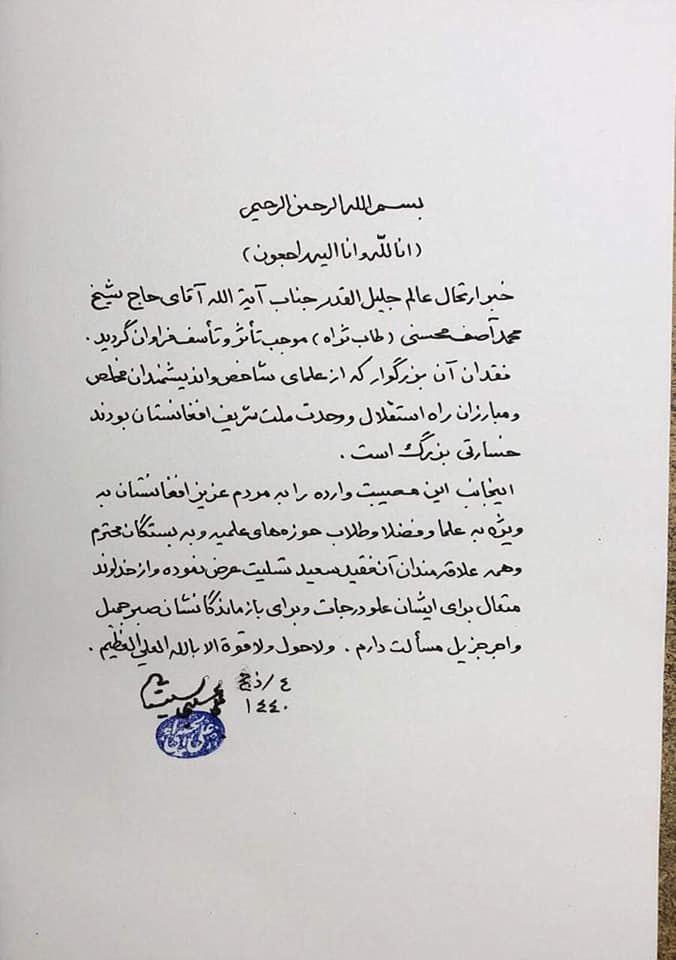 بسم الله الرحمن الرحیم
(انا لله و انا الیه راجعون)
خبر ارتحال عالم جلیل القدر جناب آیة الله آقای حاج شیخ
محمد آصف محسنی (طاب ثراه) موجب تأثر و تأسف فراوان گردید.
فقدان آن بزرگوار که از علمای شاخص و اندیشمندان مخلص
و مبارزان راه استقلال و وحدت ملت شریف افغانستان بودند
خسارتی بزرگ است.
اینجانب این مصیبت وارده را به مردم عزیز افغانستان به
ویژه به علما و فضلا و طلاب حوزه های علمیه و به بستگان محترم
و همه علاقه مندان آن فقید سعید تسلیت عرض نموده و از خداوند
متعال برای ایشان علو درجات و برای بازماندگانشان صبر جمیل
و اجر جزیل مسألت دارم. ولا حول ولا قوة الا بالله العلي العظیم.
٤/ذح
١٤٤٠
علي الحسیني السیستاني